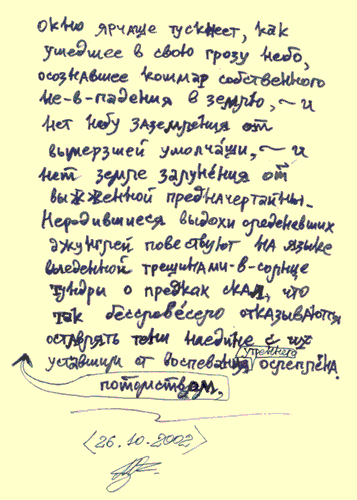 окно ярчаще тускнеет, как
ушедшее в свою грозу небо,
осознавшее кошмар собственного
не-в-падения в землю, ~ и
нет небу заземления от
вымерзшей умолчащи, ~ и
нет земле залунения от
выжженной предначертайны.
Неродившиеся выдохи оледеневших
джунглей повествуют на языке
выеденной трещинами-в-солнце
тундры о предках скал, что
так бессловесело отказываются
оставлять тени наедине с их
уставшим от воспевания утреннего ослеплена
потомством,
<26.10.2002>